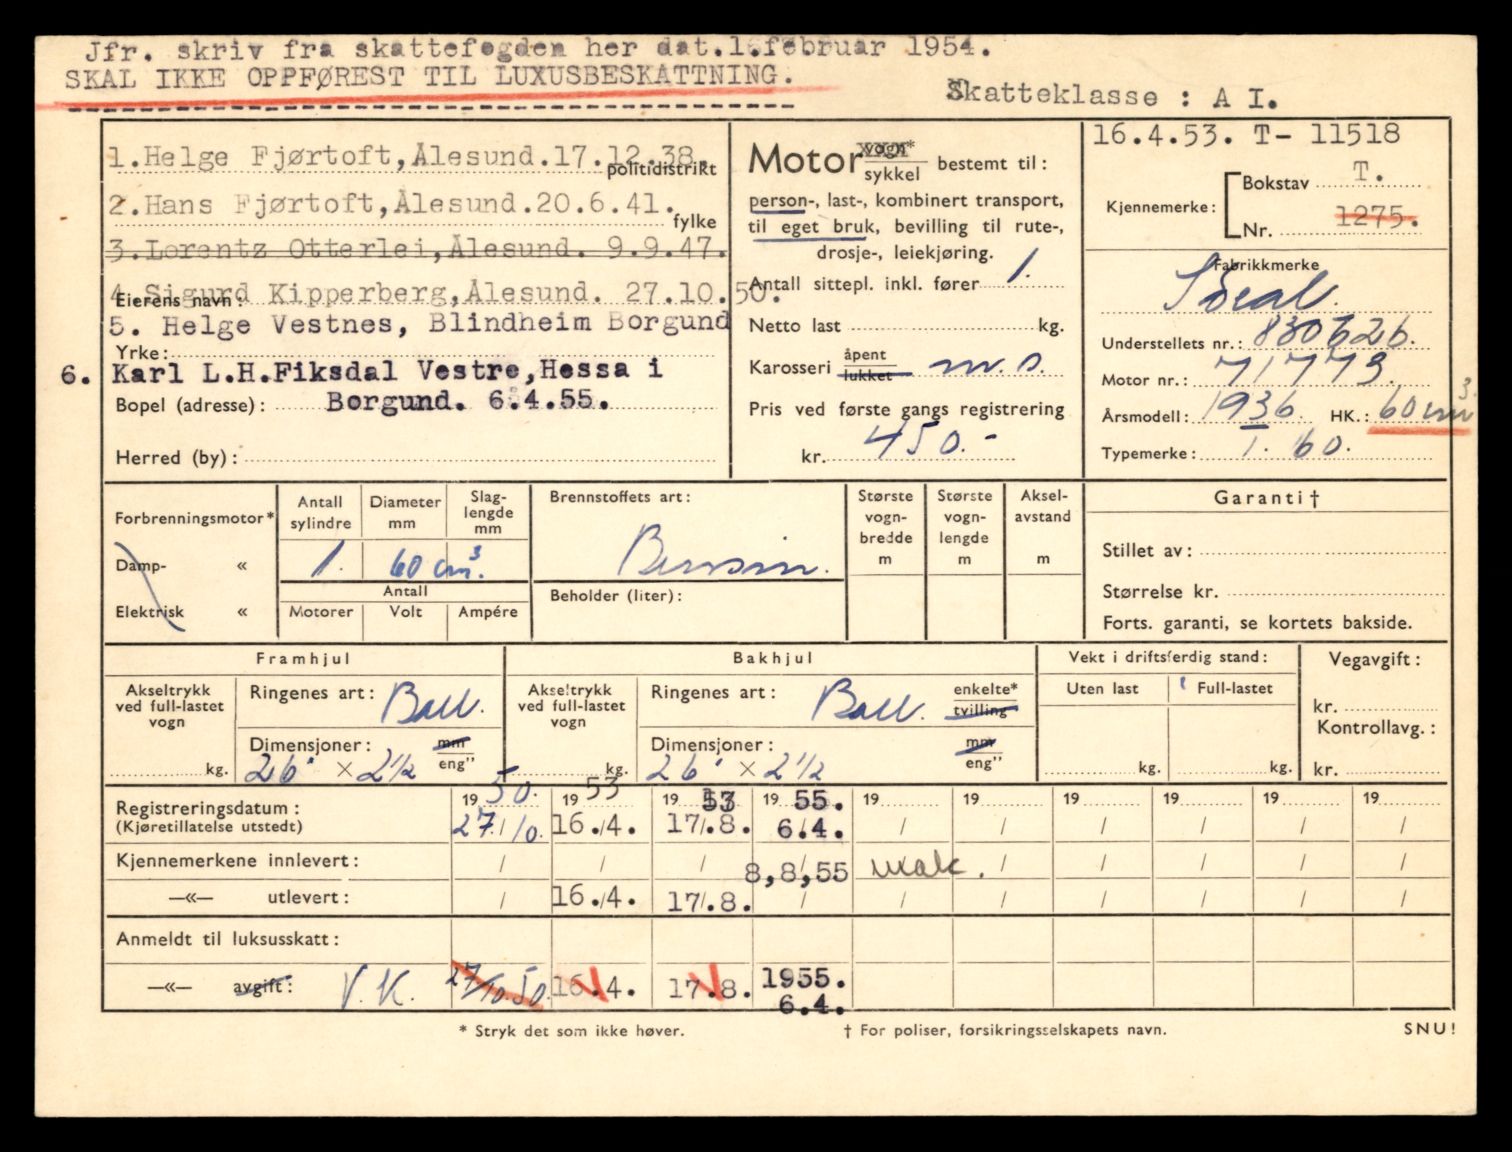 Jfr. skriv fra skattefogden her dat.1.februar 1954.
SKAL IKKE OPPFØREST TIL LUXUSBESKATTNING.
Skatteklasse : A I.
1.Helge Fjørtoft,Ålesund.17.12.38.
politidistrikt
2.Hans Fjørtoft,Ålesund.20.6.41.
fylke
3.Lorentz Otterlei,Ålesund. 9.9.47.
4.Sigurd Kipperberg,Ålesund. 27.10.50.
Eierens navn:
5. Helge Vestnes, Blindheim Borgund
Yrke:
6. Karl L.H.Fiksdal Vestre,Hessa i
Bopel (adresse): Borgund. 6.4.55.
Herred (by):
Motor vogn* sykkel bestemt til:
person-, last-, kombinert transport,
til eget bruk, bevilling til rute-,
drosje-, leiekjøring.
Antall sittepl. inkl. fører 1.
Netto last kg.
Karosseri åpent lukket m.s.
Pris ved første gangs registrering
kr. 450.-
16.4.53. T- 11518
Kjennemerke: Bokstav T.
Nr. 1275.
Fabrikkmerke
Understellets nr.: 830626.
Motor nr.: 71773.
Årsmodell: 1936. HK.: 60 cm3.
Typemerke: 1. 60.
Forbrenningsmotor*
Damp- «
Elektrisk «
Antall sylindre
Diameter mm
Slag-lengde mm
1. 60 cm3.
Antall
Motorer Volt Ampére
Brennstoffets art:
Bensin.
Beholder (liter):
Største vogn-bredde m
Største vogn-lengde m
Aksel-avstand m
Garanti †
Stillet av:
Størrelse kr.
Forts. garanti, se kortets bakside.
Framhjul
Akseltrykk ved full-lastet vogn
kg.
Ringenes art: Ball.
Dimensjoner: mm eng"
26" × 2 1/2
Bakhjul
Akseltrykk ved full-lastet vogn
kg.
Ringenes art: Ball. enkelte* tvilling
Dimensjoner: mm eng"
26" × 2 1/2
Vekt i driftsferdig stand:
Uten last Full-lastet
kg. kg.
Vegavgift:
kr.
Kontrollavg.:
kr.
Registreringsdatum: 19 50. 19 53 19 53 19 55. 19 19 19 19 19 19
(Kjøretillatelse utstedt) 27/10. 16./4. 17/.8. 6/.4. / / / / / /
Kjennemerkene innlevert: / / / 8,8,55 / / / / / /
—«— utlevert: / 16./4. 17/.8. / / / / / / /
Anmeldt til luksusskatt:
—«— avgift: V.K. 27/10.50. 16.4. 17.8. 1955. 6.4.
* Stryk det som ikke høver.
† For poliser, forsikringsselskapets navn.
SNU!